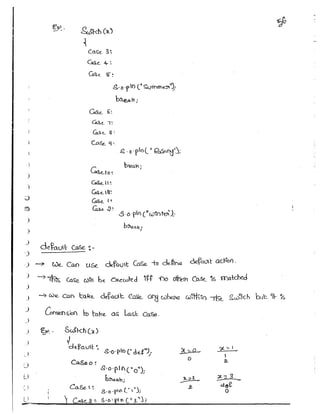 Ex:-
Switch (x)
{
Case 3:
Case 4:
Case 5:
S.o.pln ("Summer");
break;
Case 6:
Case 7:
Case 8:
Case 9:
S.o.pln ("Rainy");
break;
Case 10:
Case 11:
Case 12:
Case 1:
Case 2:
S.o.pln ("winter");
break;
default case :-
→ we can use default case to define default action.
→ This case will be executed iff no other case is matched
→ we can take default case any where within the switch but it is
Convension to take as last case.
Ex:- Switch (x)
{
default: S.o.pln ("def");
x=0 x=1
0 1
2
Case 0:
S.o.pln ("0");
break;
x=2 x=3
Case 1: S.o.pln ("1");
2 def
0
} Case 2: S.o.pln ("2");